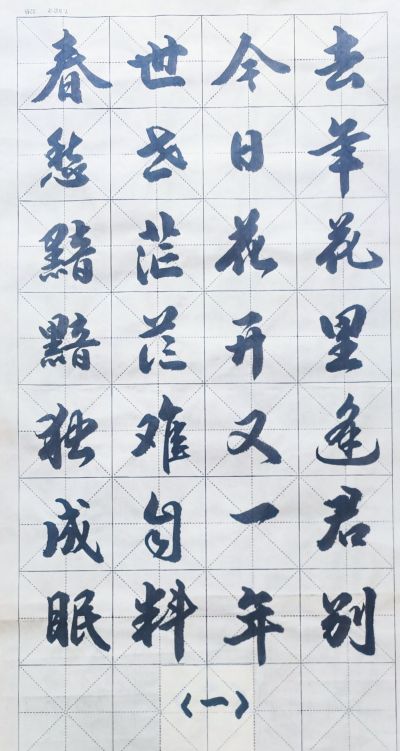 去年花里逢君别
今日花开又一年
世事茫茫难自料
春愁黯黯独成眠
〈一〉